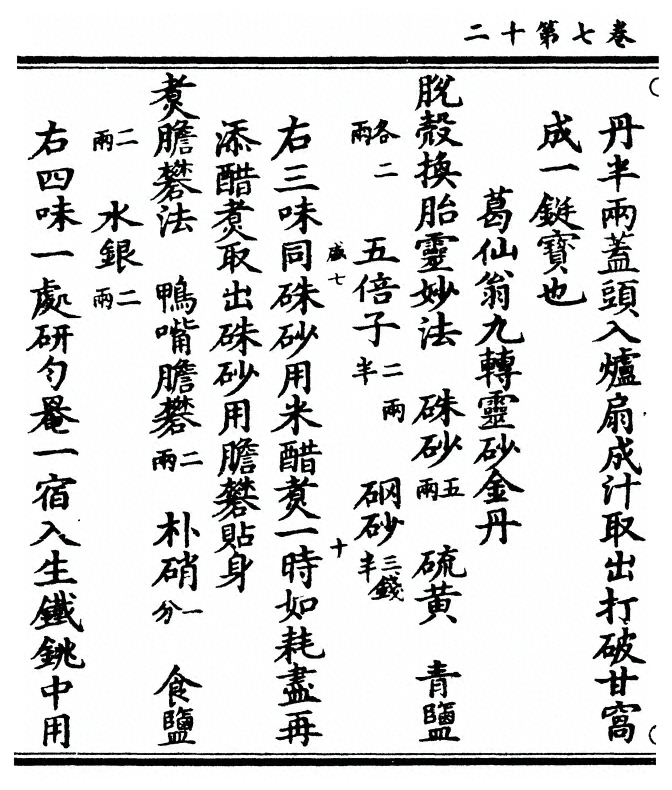 二十第七卷
丹半兩蓋頭入爐扇成汁取出打破甘窩
成一鋌寶也
葛仙翁九轉靈砂金丹
脫殼換胎靈妙法　硃砂五兩　硫黃　青鹽
各二兩　五倍子二兩半　硇砂三錢半
盛七　十
右三味同硃砂用米醋煑一時如耗盡再
添醋煑取出硃砂用膽礬貼身
煑膽礬法　鴨嘴膽礬二兩　朴硝一分　食鹽
二兩　水銀二兩
右四味一處研勻罨一宿入生鐵銚中用